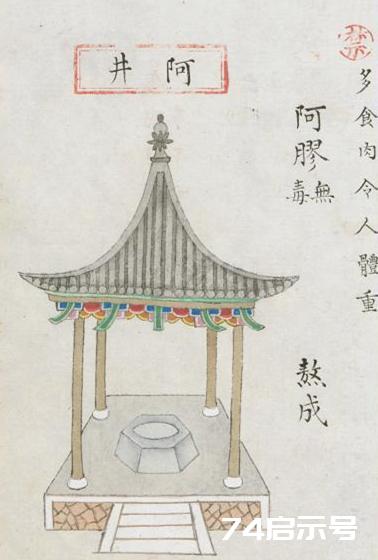 禁
多食肉令人體重
阿膠
無毒
熬成
阿井
74启示号